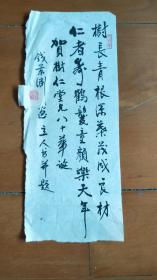 樹長青根深葉茂成良材
仁者壽鶴髮童顏樂天年
賀樹仁堂兄八十華誕
錢業
主人書并題